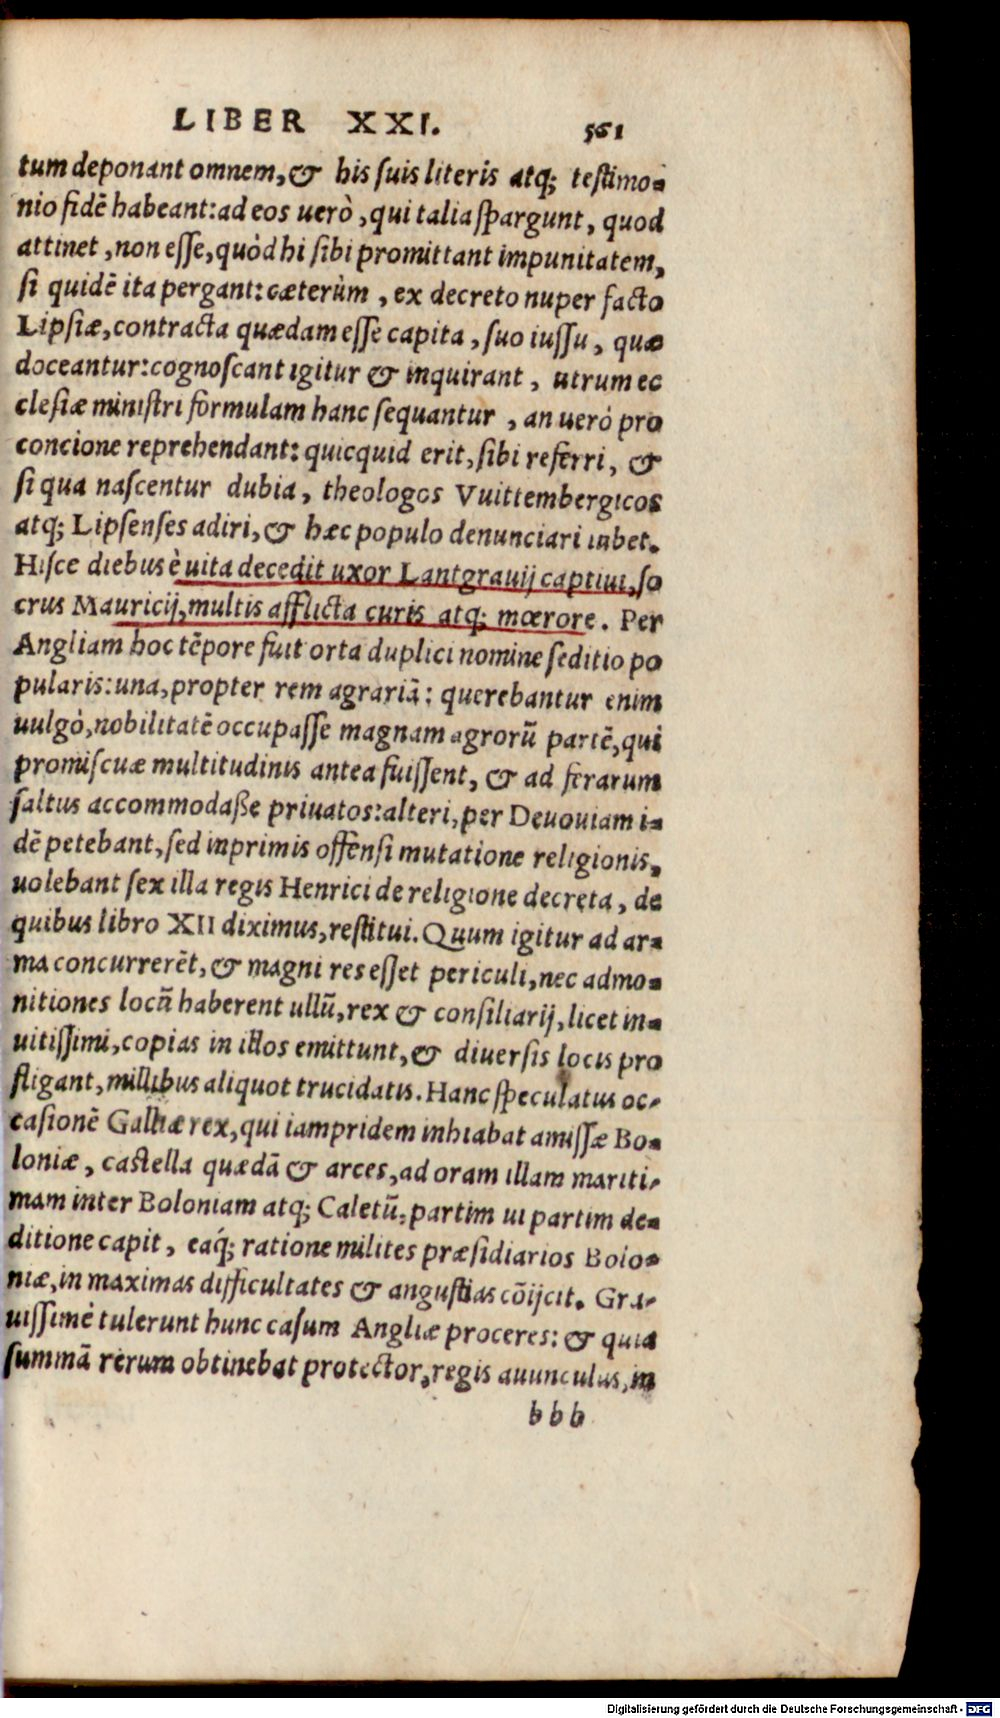 LIBER XXI. 561
tum deponant omnem, & his suis literis atq; testimo-
nio fidē habeant: ad eos uerò, qui talia spargunt, quod
attinet, non esse, quòd hi sibi promittant impunitatem,
si quidē ita pergant: cæterùm, ex decreto nuper facto
Lipsiæ, contracta quædam esse capita, suo iussu, quæ
doceantur: cognoscant igitur & inquirant, utrum ec
clesiæ ministri formulam hanc sequantur, an uerò pro
concione reprehendant: quicquid erit, sibi referri, &
si qua nascentur dubia, theologos Vuittembergicos
atq; Lipsenses adiri, & hæc populo denunciari iubet.
Hisce diebus è uita decedit uxor Lantgrauij captiui, so
crus Mauricij, multis afflicta curis atq; mœrore. Per
Angliam hoc tēpore fuit orta duplici nomine seditio po
pularis: una, propter rem agrariā: querebantur enim
uulgò, nobilitatē occupasse magnam agrorū partē, qui
promiscuæ multitudinis antea fuissent, & ad ferarum
saltus accommodaße priuatos: alteri, per Deuoniam i-
dē petebant, sed inprimis offensi mutatione religionis,
uolebant sex illa regis Henrici de religione decreta, de
quibus libro XII diximus, restitui. Quum igitur ad ar-
ma concurrerēt, & magni res esset periculi, nec admo-
nitiones locū haberent ullū, rex & consiliarij, licet in-
uitissimi, copias in illos emittunt, & diuersis locis pro
fligant, millibus aliquot trucidatis. Hanc speculatus oc-
casionē Galliæ rex, qui iampridem inhiabat amissæ Bo-
loniæ, castella quædā & arces, ad oram illam mariti-
mam inter Boloniam atq; Caletū, partim ui partim de-
ditione capit, eáq; ratione milites præsidiarios Bolo-
niæ, in maximas difficultates & angustias cōijcit. Gra-
uissimè tulerunt hunc casum Angliæ proceres: & quia
summā rerum obtinebat protector, regis auunculus, in
bbb
Digitalisierung gefördert durch die Deutsche Forschungsgemeinschaft - DFG